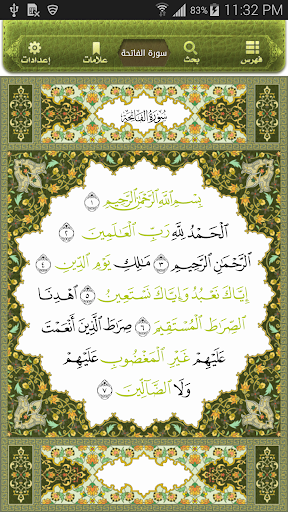 83% 11:32 PM
فهرس بحث سورة الفاتحة علامات إعدادات
سُورَةُ الفَاتِحَةِ
بِسْمِ ٱللَّهِ ٱلرَّحْمَٰنِ ٱلرَّحِيمِ ١
ٱلْحَمْدُ لِلَّهِ رَبِّ ٱلْعَٰلَمِينَ ٢
ٱلرَّحْمَٰنِ ٱلرَّحِيمِ ٣ مَٰلِكِ يَوْمِ ٱلدِّينِ ٤
إِيَّاكَ نَعْبُدُ وَإِيَّاكَ نَسْتَعِينُ ٥ ٱهْدِنَا
ٱلصِّرَٰطَ ٱلْمُسْتَقِيمَ ٦ صِرَٰطَ ٱلَّذِينَ أَنْعَمْتَ
عَلَيْهِمْ غَيْرِ ٱلْمَغْضُوبِ عَلَيْهِمْ
وَلَا ٱلضَّآلِّينَ ٧